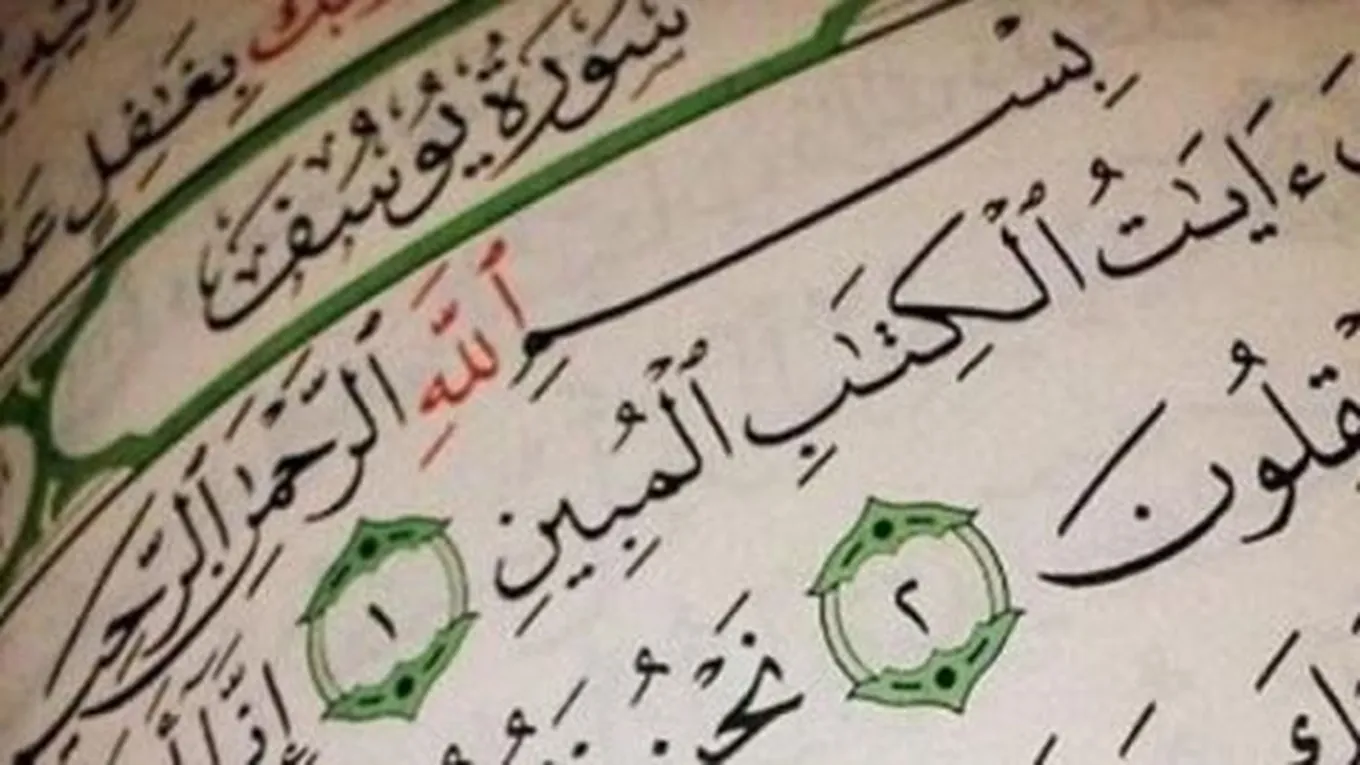 بِغَٰفِلٍ
سُورَةُ يُوسُفَ
بِسْمِ ٱللَّهِ ٱلرَّحْمَٰنِ ٱلرَّحِيمِ
ءَايَٰتُ ٱلْكِتَٰبِ ٱلْمُبِينِ ١
قِلُونَ ٢ نَحْنُ